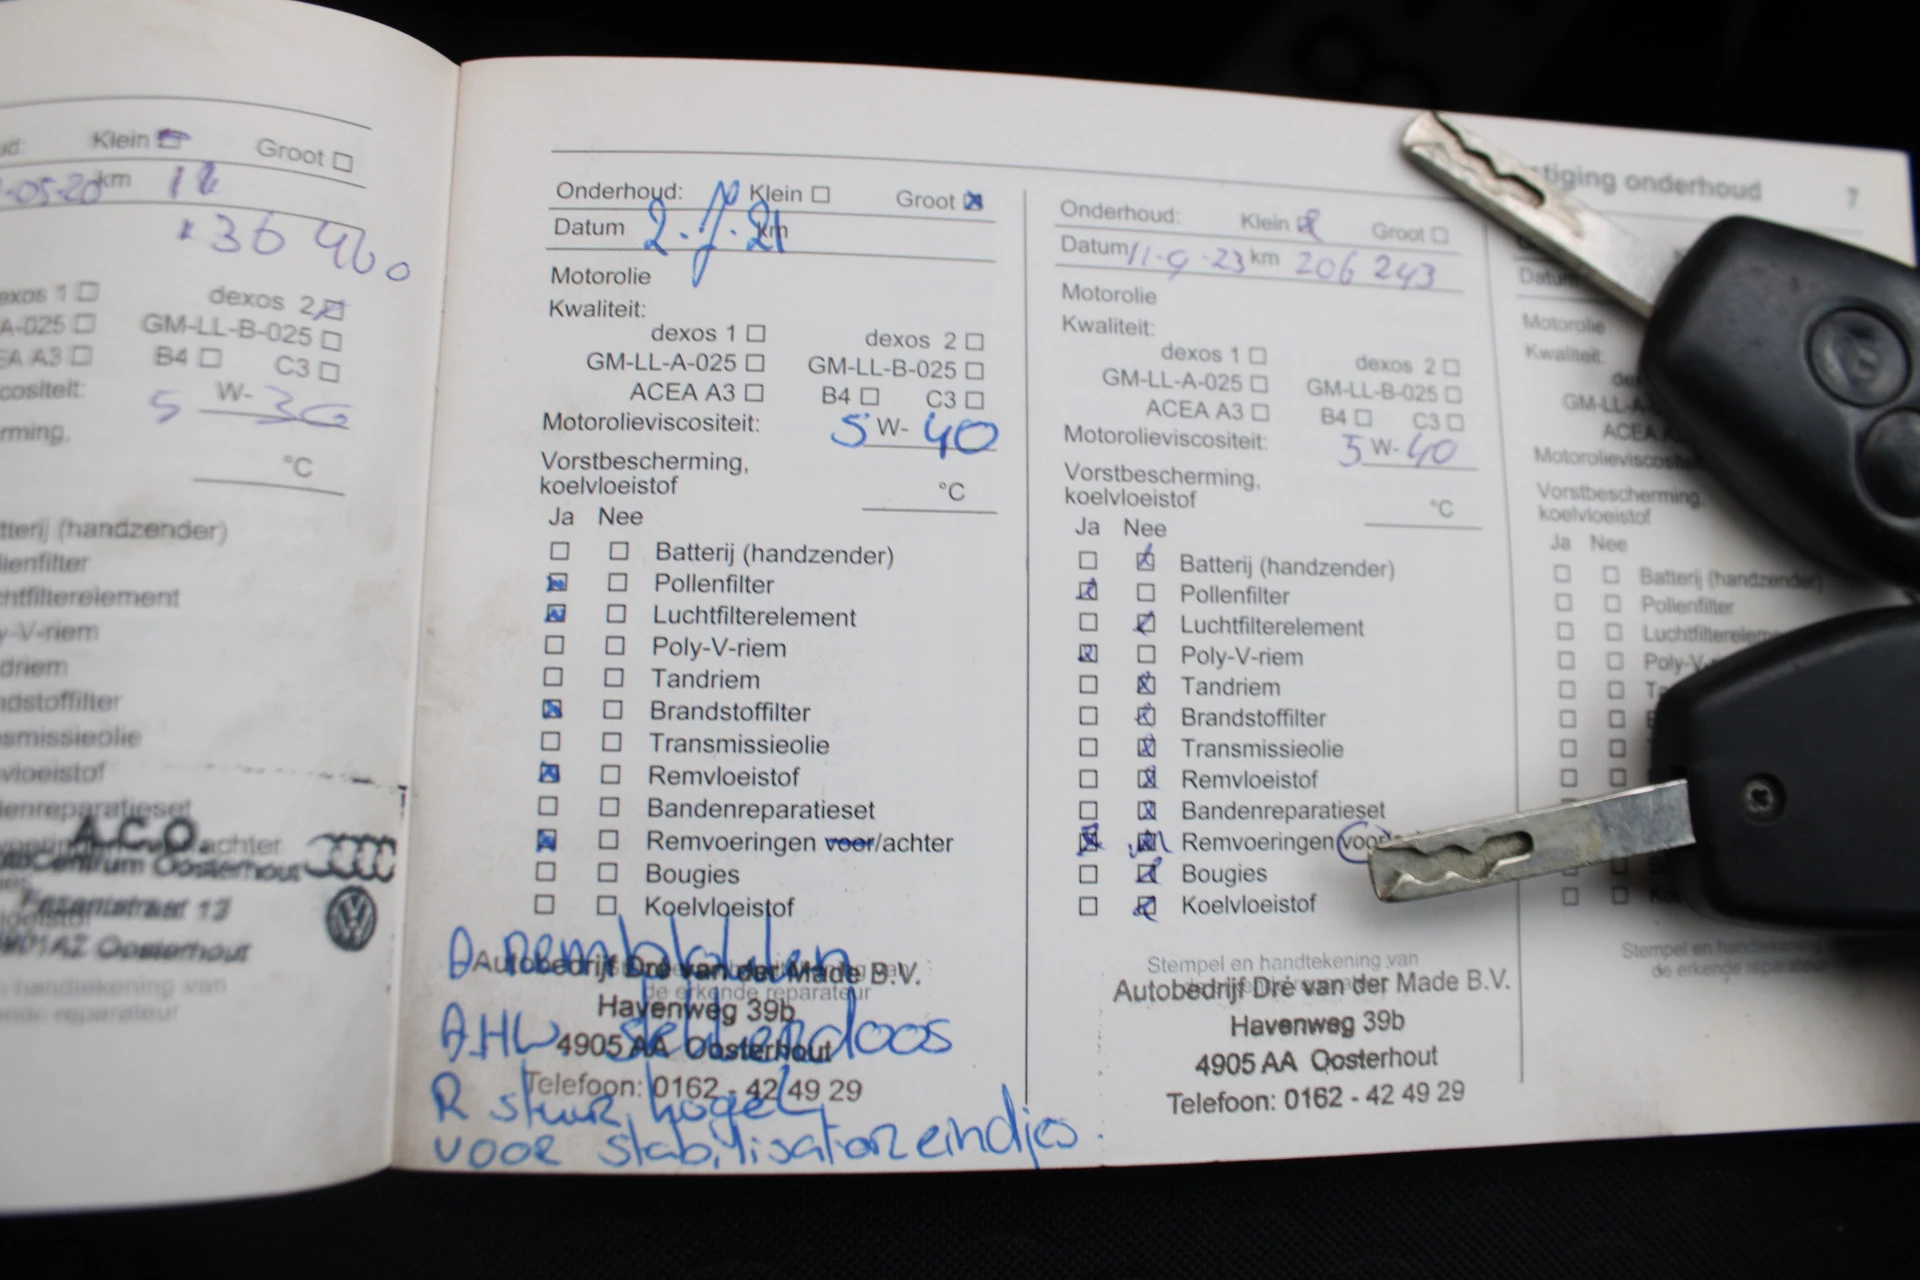 Klein Groot
-05-20 km
dexos 1 dexos 2
A-025 GM-LL-B-025
EA A3 B4 C3
cositeit: 5 W-30
rming,
°C
tterij (handzender)
llenfilter
chtfilterelement
y-V-riem
driem
ndstoffilter
smissieolie
vloeistof
denreparatieset
achter
A.C.O
Centrum Oosterhout
13
AZ Oosterhout
handtekening van
ende reparateur
Onderhoud: Klein Groot
Datum km
Motorolie
Kwaliteit:
dexos 1 dexos 2
GM-LL-A-025 GM-LL-B-025
ACEA A3 B4 C3
Motorolieviscositeit: 5 W-40
Vorstbescherming,
koelvloeistof °C
Ja Nee
Batterij (handzender)
Pollenfilter
Luchtfilterelement
Poly-V-riem
Tandriem
Brandstoffilter
Transmissieolie
Remvloeistof
Bandenreparatieset
Remvoeringen voor/achter
Bougies
Koelvloeistof
A remblokken
Autobedrijf Dré van der Made B.V.
de erkende reparateur
Havenweg 39b
AHW stekkerdoos
4905 AA Oosterhout
Telefoon: 0162 - 42 49 29
R stuur kogel
voor stabilisator eindjes.
Onderhoud: Klein Groot
Datum 11-9-23 km 206 243
Motorolie
Kwaliteit:
dexos 1 dexos 2
GM-LL-A-025 GM-LL-B-025
ACEA A3 B4 C3
Motorolieviscositeit: 5 W-40
Vorstbescherming,
koelvloeistof °C
Ja Nee
Batterij (handzender)
Pollenfilter
Luchtfilterelement
Poly-V-riem
Tandriem
Brandstoffilter
Transmissieolie
Remvloeistof
Bandenreparatieset
Remvoeringen
Bougies
Koelvloeistof
Stempel en handtekening van
Autobedrijf Dré van der Made B.V.
Havenweg 39b
4905 AA Oosterhout
Telefoon: 0162 - 42 49 29
stiging onderhoud 7
Datum
Motorolie
Kwaliteit:
GM-LL-A
ACEA A
Motorolieviscosite
Vorstbescherming,
koelvloeistof
Ja Nee
Batterij (handzender)
Pollenfilter
Luchtfilterelem
Poly-V
Stempel en handtekening
de erkende reparateur